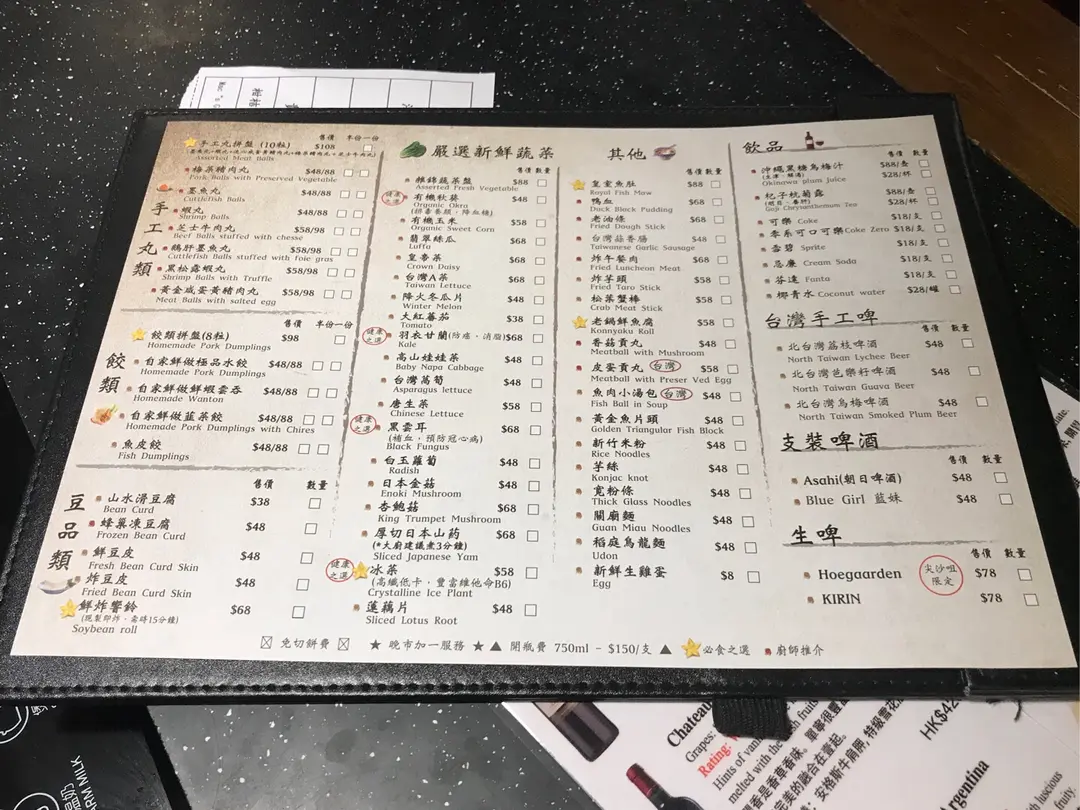 售價 半份一份
手工丸拼盤 (10粒) $108
Assorted Meat Balls
手工丸類
梅菜豬肉丸 $48/88
Pork Balls with Preserved Vegetable
墨魚丸 $48/88
Cuttlefish Balls
蝦丸 $48/88
Shrimp Balls
芝士牛肉丸 $58/98
Beef Balls stuffed with chesse
鵝肝墨魚丸 $58/98
Cuttlefish Balls stuffed with foie gras
黑松露蝦丸 $58/98
Shrimp Balls with Truffle
黃金咸蛋黃豬肉丸 $58/98
Meat Balls with salted egg
售價 半份一份
餃類拼盤(8粒) $98
Homemade Pork Dumplings
餃類
自家鮮做極品水餃 $48/88
Homemade Pork Dumplings
自家鮮做鮮蝦雲吞 $48/88
Homemade Wanton
自家鮮做韮菜餃 $48/88
Homemade Pork Dumplings with Chires
魚皮餃 $48/88
Fish Dumplings
售價 數量
豆品類
山水滑豆腐 $38
Bean Curd
蜂巢凍豆腐 $48
Frozen Bean Curd
鮮豆皮 $48
Fresh Bean Curd Skin
炸豆皮 $48
Fried Bean Curd Skin
鮮炸響鈴 $68
(現製即炸,需時15分鐘)
Soybean roll
嚴選新鮮蔬菜
售價 數量
雜錦蔬菜盤 $88
Asserted Fresh Vegetable
健康之選
有機秋葵 $48
Organic Okra
(排毒養顏,降血糖)
有機玉米 $58
Organic Sweet Corn
翡翠絲瓜 $68
Luffa
皇帝菜 $68
Crown Daisy
台灣A菜 $68
Taiwan Lettuce
降火冬瓜片 $48
Winter Melon
大紅蕃茄 $38
Tomato
健康之選
羽衣甘蘭(防癌,消脂) $68
Kale
高山娃娃菜 $48
Baby Napa Cabbage
台灣萵筍 $48
Asparagus lettuce
唐生菜 $58
Chinese Lettuce
健康之選
黑雲耳 $68
(補血,預防冠心病)
Black Fungus
白玉蘿蔔 $48
Radish
日本金菇 $48
Enoki Mushroom
杏鮑菇 $68
King Trumpet Mushroom
厚切日本山药 $68
(*大廚建議煮3分鐘)
Sliced Japanese Yam
健康之選
冰菜 $58
(高纖低卡,豐富維他命B6)
Crystalline Ice Plant
蓮藕片 $48
Sliced Lotus Root
其他
售價 數量
皇室魚肚 $88
Royal Fish Maw
鴨血 $68
Duck Block Pudding
老油條 $68
Fried Dough Stick
台灣蒜香腸 $48
Taiwanese Garlic Sausage
炸午餐肉 $68
Fried Luncheon Meat
炸芋頭 $58
Fried Taro Stick
松葉蟹棒 $58
Crab Meat Stick
老鍋鮮魚腐 $58
Konnyaku Roll
香菇貢丸 $48
Meatball with Mushroom
皮蛋貢丸 台灣 $58
Meatball with Preser Ved Egg
魚肉小湯包 台灣 $48
Fish Ball in Soup
黃金魚片頭 $48
Golden Triangular Fish Block
新竹米粉 $48
Rice Noodles
芋絲 $48
Konjac knot
寬粉條 $48
Thick Glass Noodles
關廟麵 $48
Guan Miau Noodles
稻庭烏龍麵 $48
Udon
新鮮生雞蛋 $8
Egg
飲品
售價 數量
沖繩黑糖烏梅汁 $88/壺
Okinawa plum juice $28/杯
杞子杭菊露 $88/壺
Goji Chrysanthemum Tea $28/杯
可樂 Coke $18/支
零系可口可樂 Coke Zero $18/支
雪碧 Sprite $18/支
忌廉 Cream Soda $18/支
芬達 Fanta $18/支
椰青水 Coconut water $28/罐
台灣手工啤
售價 數量
北台灣荔枝啤酒 $48
North Taiwan Lychee Beer
北台灣芭樂籽啤酒 $48
North Taiwan Guava Beer
北台灣烏梅啤酒 $48
North Taiwan Smoked Plum Beer
支裝啤酒
售價 數量
Asahi(朝日啤酒) $48
Blue Girl 藍妹 $48
生啤
售價 數量
Hoegaarden 尖沙咀限定 $78
KIRIN $78
免切餅費 ★ 晚市加一服務 ★ ▲ 開瓶費 750ml - $150/支 ▲ 必食之選 廚師推介
ARM MILK
Chateau
Grapes:
Rating:
Hints of van
melted with the
HK$42
rgentina
luscious
fruity.